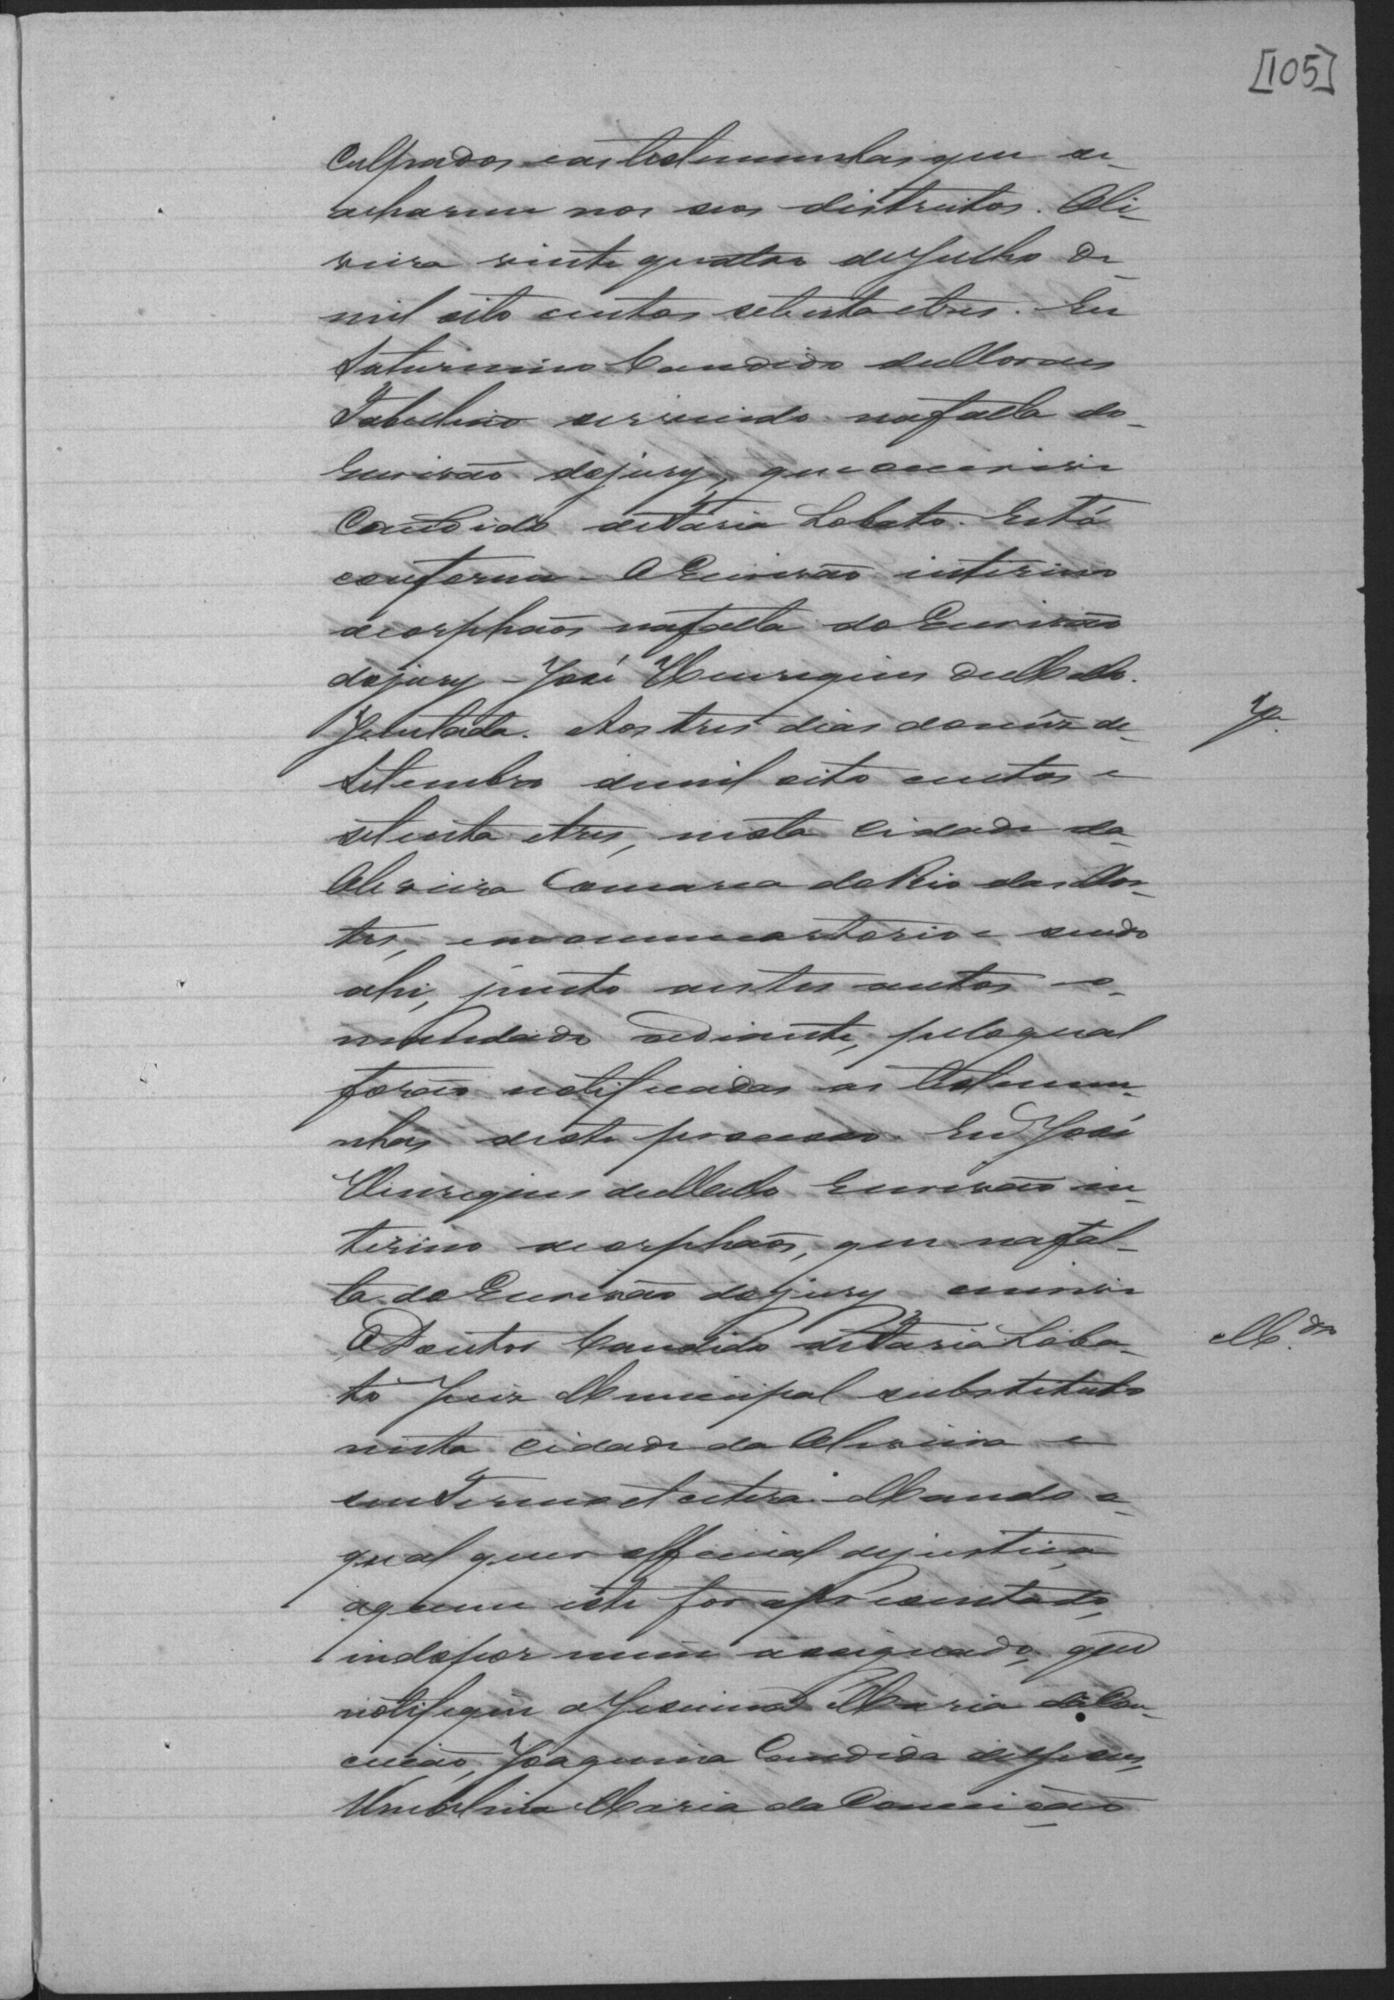 [105]
Culpados e as testemunhas que se
acharem nos seos districtos. Oli-
veira vinte quatro de Julho de
mil oito centos setenta e tres. Eu
Saturnino Candido de Moraes
Tabelliao servindo na falta do
Escrivão do jury, que o escrevi
Candido de Faria Lobato. Está
conforme. O Escrivão interino
de orphãos na falta do Escrivão
do jury - José Henriques de Mello.
Juntada. Aos tres dias do mez de
Setembro de mil oito centos e
setenta e tres, nesta cidade da
Oliveira Comarca do Rio das Mor-
tes, em o meu cartorio e sendo
ahi, junto a estes autos o
mandado rediante, pelo qual
J.
forão notificadas as testemu-
nhas deste processo. Eu José
Henriques de Mello Escrivão in-
terino de orphãos, que na fal-
ta do Escrivão do jury escrevi
O Doutor Candido de Faria Loba-
M.do
to Juiz Municipal substituto
nesta cidade da Oliveira e
seu Termo et cetera. Mando a
qual quer official de justiça,
a quem este for apresentado,
indo por mim assignado, que
notifique a Jesuina Maria da Con-
ceição, Joaquina Candida de Jesus,
Umbelina Maria da Conceição